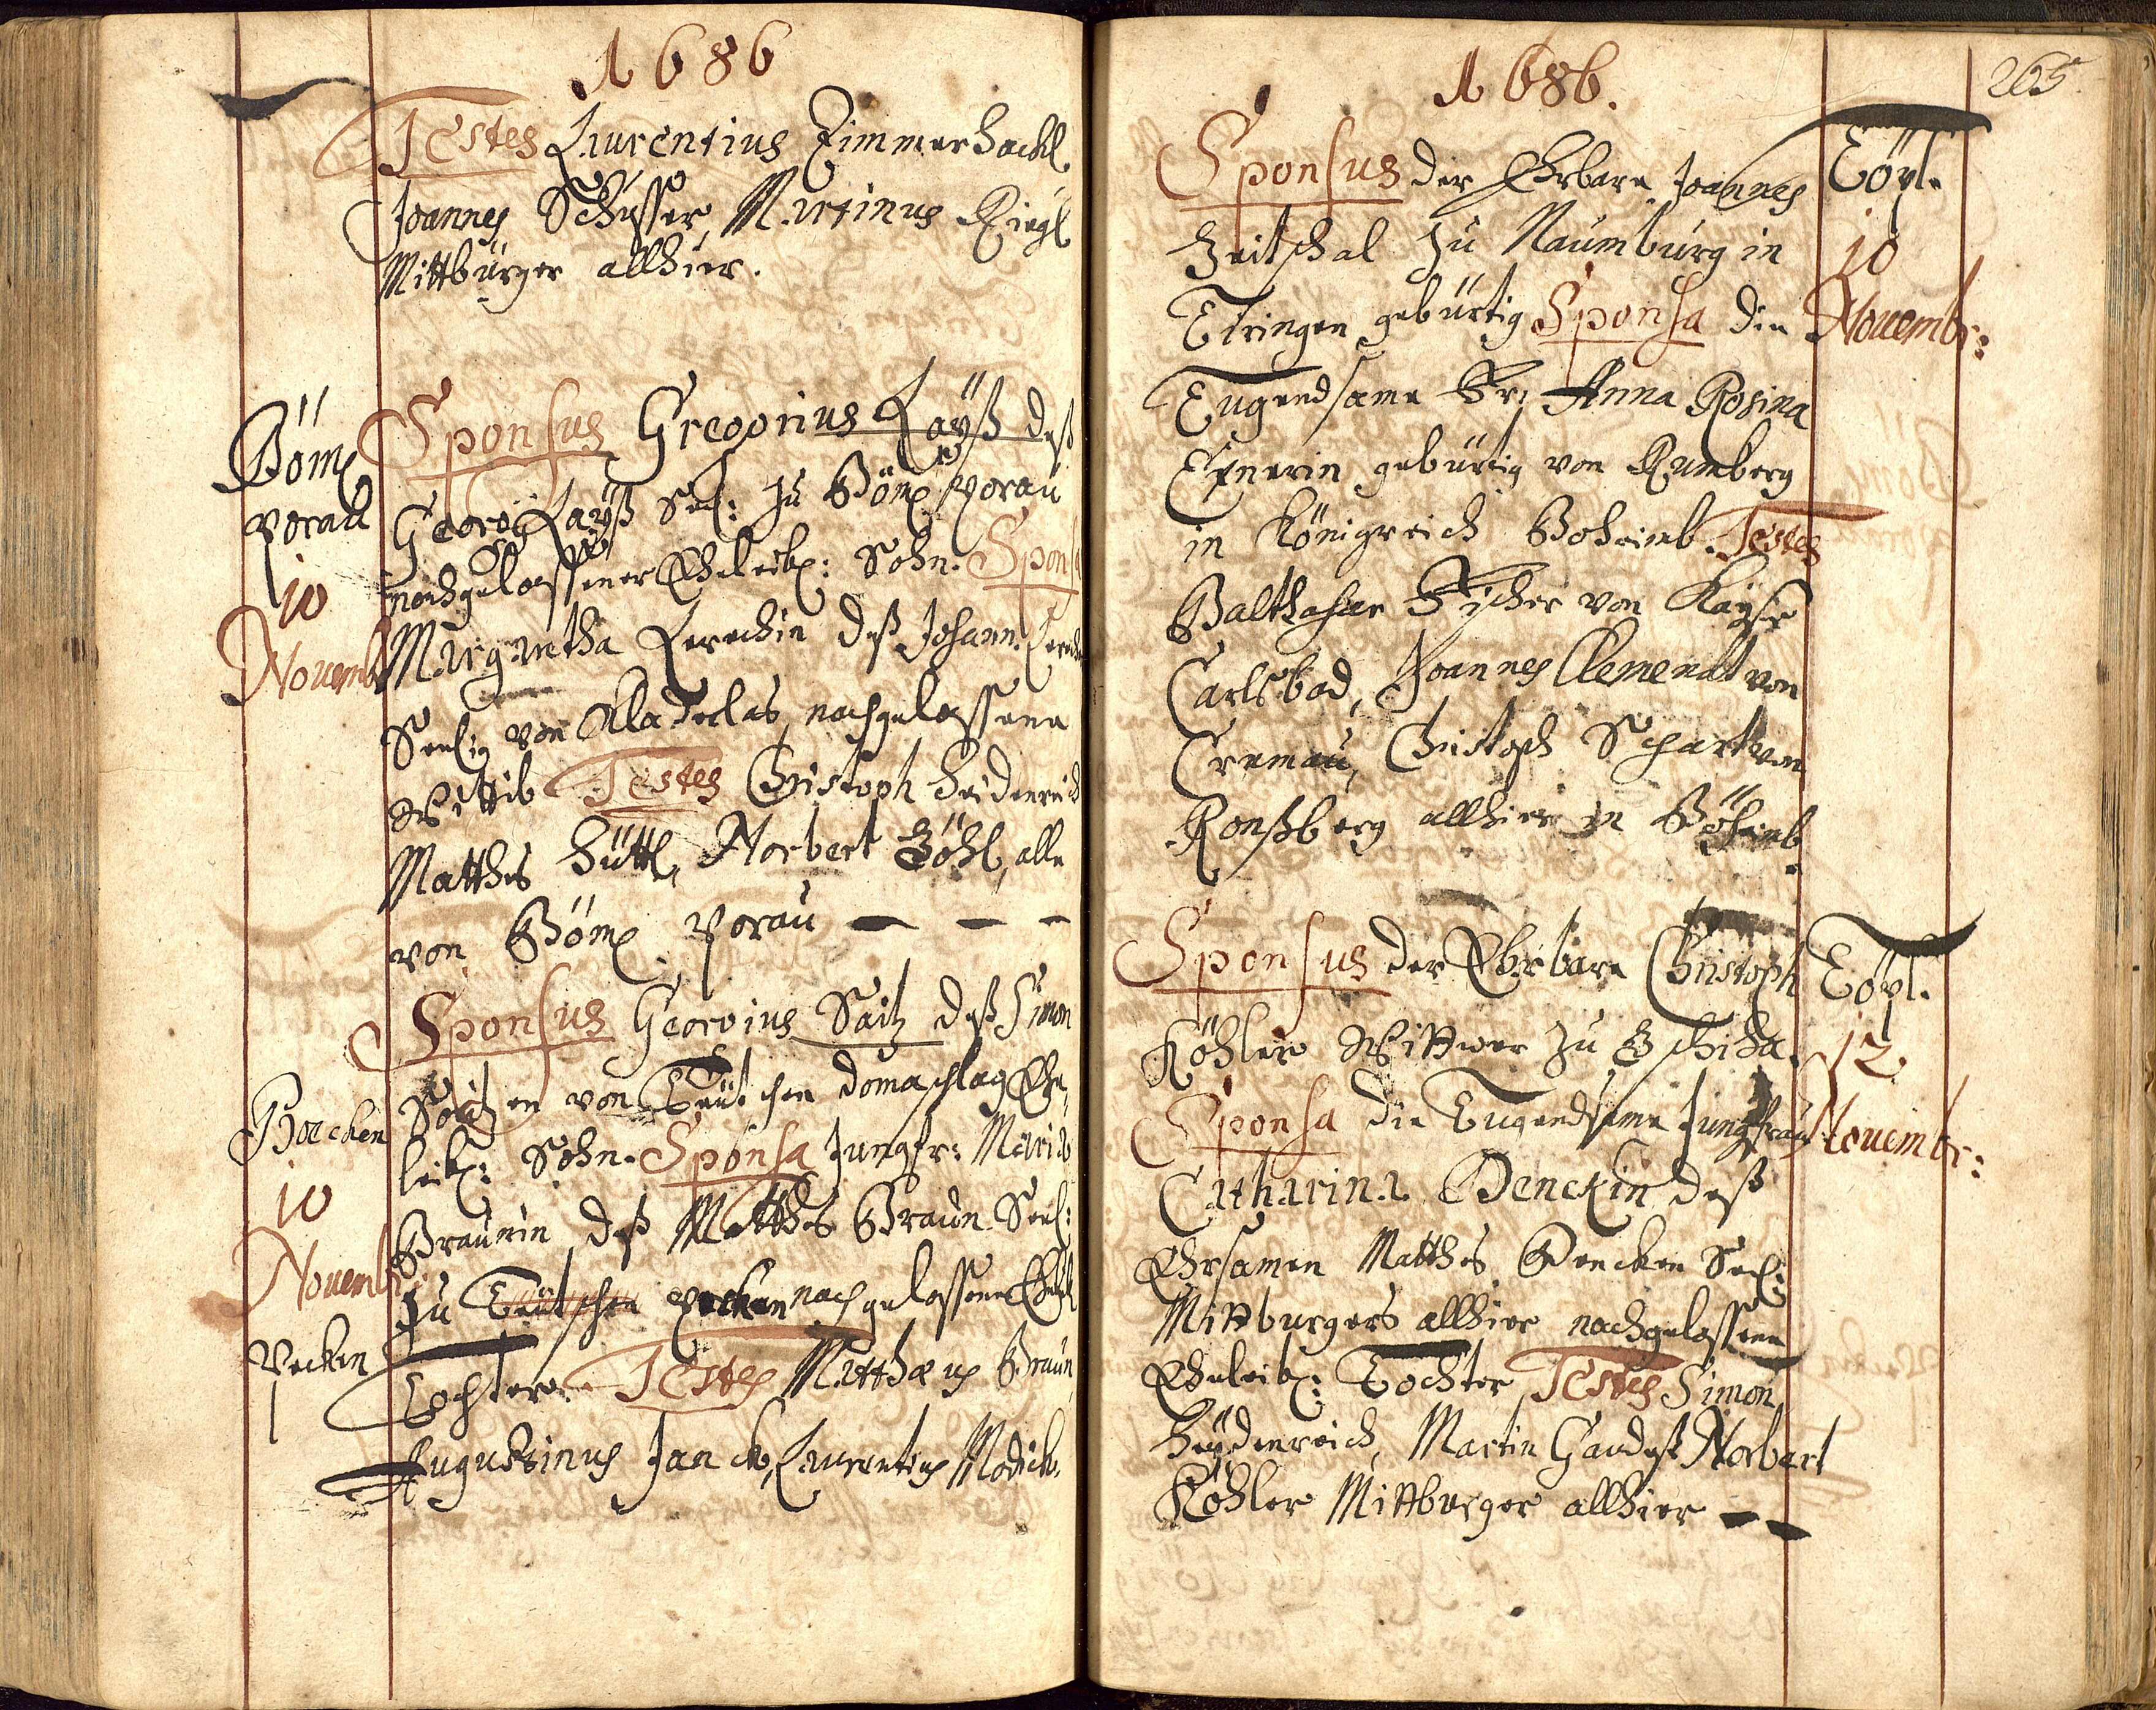 1686
Testes Laurentius Zimmerhackl
Joannes Schusser, Martinus Riegl
Mittbürger allhier.
Böm
Borau
10
Novemb
Sponsus Gregorius Layß deß
Georg Layß Seel: zu Böm Borau
nachgelassener Eheleibl: Sohn. Sponsa
Margaretha Lerachin deß Johann
Seelig von Kladerlas nachgelassene
Wittib Testes Christoph Heidenreich
Matthes Hüttl, Norbert Zöhl, alle
von Böm Borau
Sponsus Georgius Saitz deß Simon
Saitzen von Teütschen domaschlag Ehe
leibl: Sohn. Sponsa Jungfr: Maria
Braunin deß Matthes Braun Seel:
zu Teütschen Vecken nachgelassene
Tochter. Testes Matthæus Braun
Augustinus Janck, Laurentius Modick.
10
Novemb
Vecken
1686.
265
Töpl.
10
Novembr:
Sponsus der Ehrbare Joannes
Zeitschal zu Naumburg in
Tiringen gebürtig Sponsa die
Tugendsame Fr: Anna Rosina
Exnerin gebürtig von Rumberg
in Königreich Boheimb. Testes
Balthasar Fischer von Kayser
Carlsbad, Joannes Clemendt von
Cremau, Christoph Schart von
Ronßberg allhier in Böheimb
Töpl.
12
Novembr:
Sponsus der Ehrbare Christoph
Köhler Wittwer zu
Sponsa die Tugendsame Jungfrau
Catharina Denckin deß
Ehrsamen Matthes Dencken Seel:
Mittburgers allhier nachgelassene
Eheleibl: Tochter Testes Simon
Heydenreich, Martin Norbert
Köhler Mittburger allhier